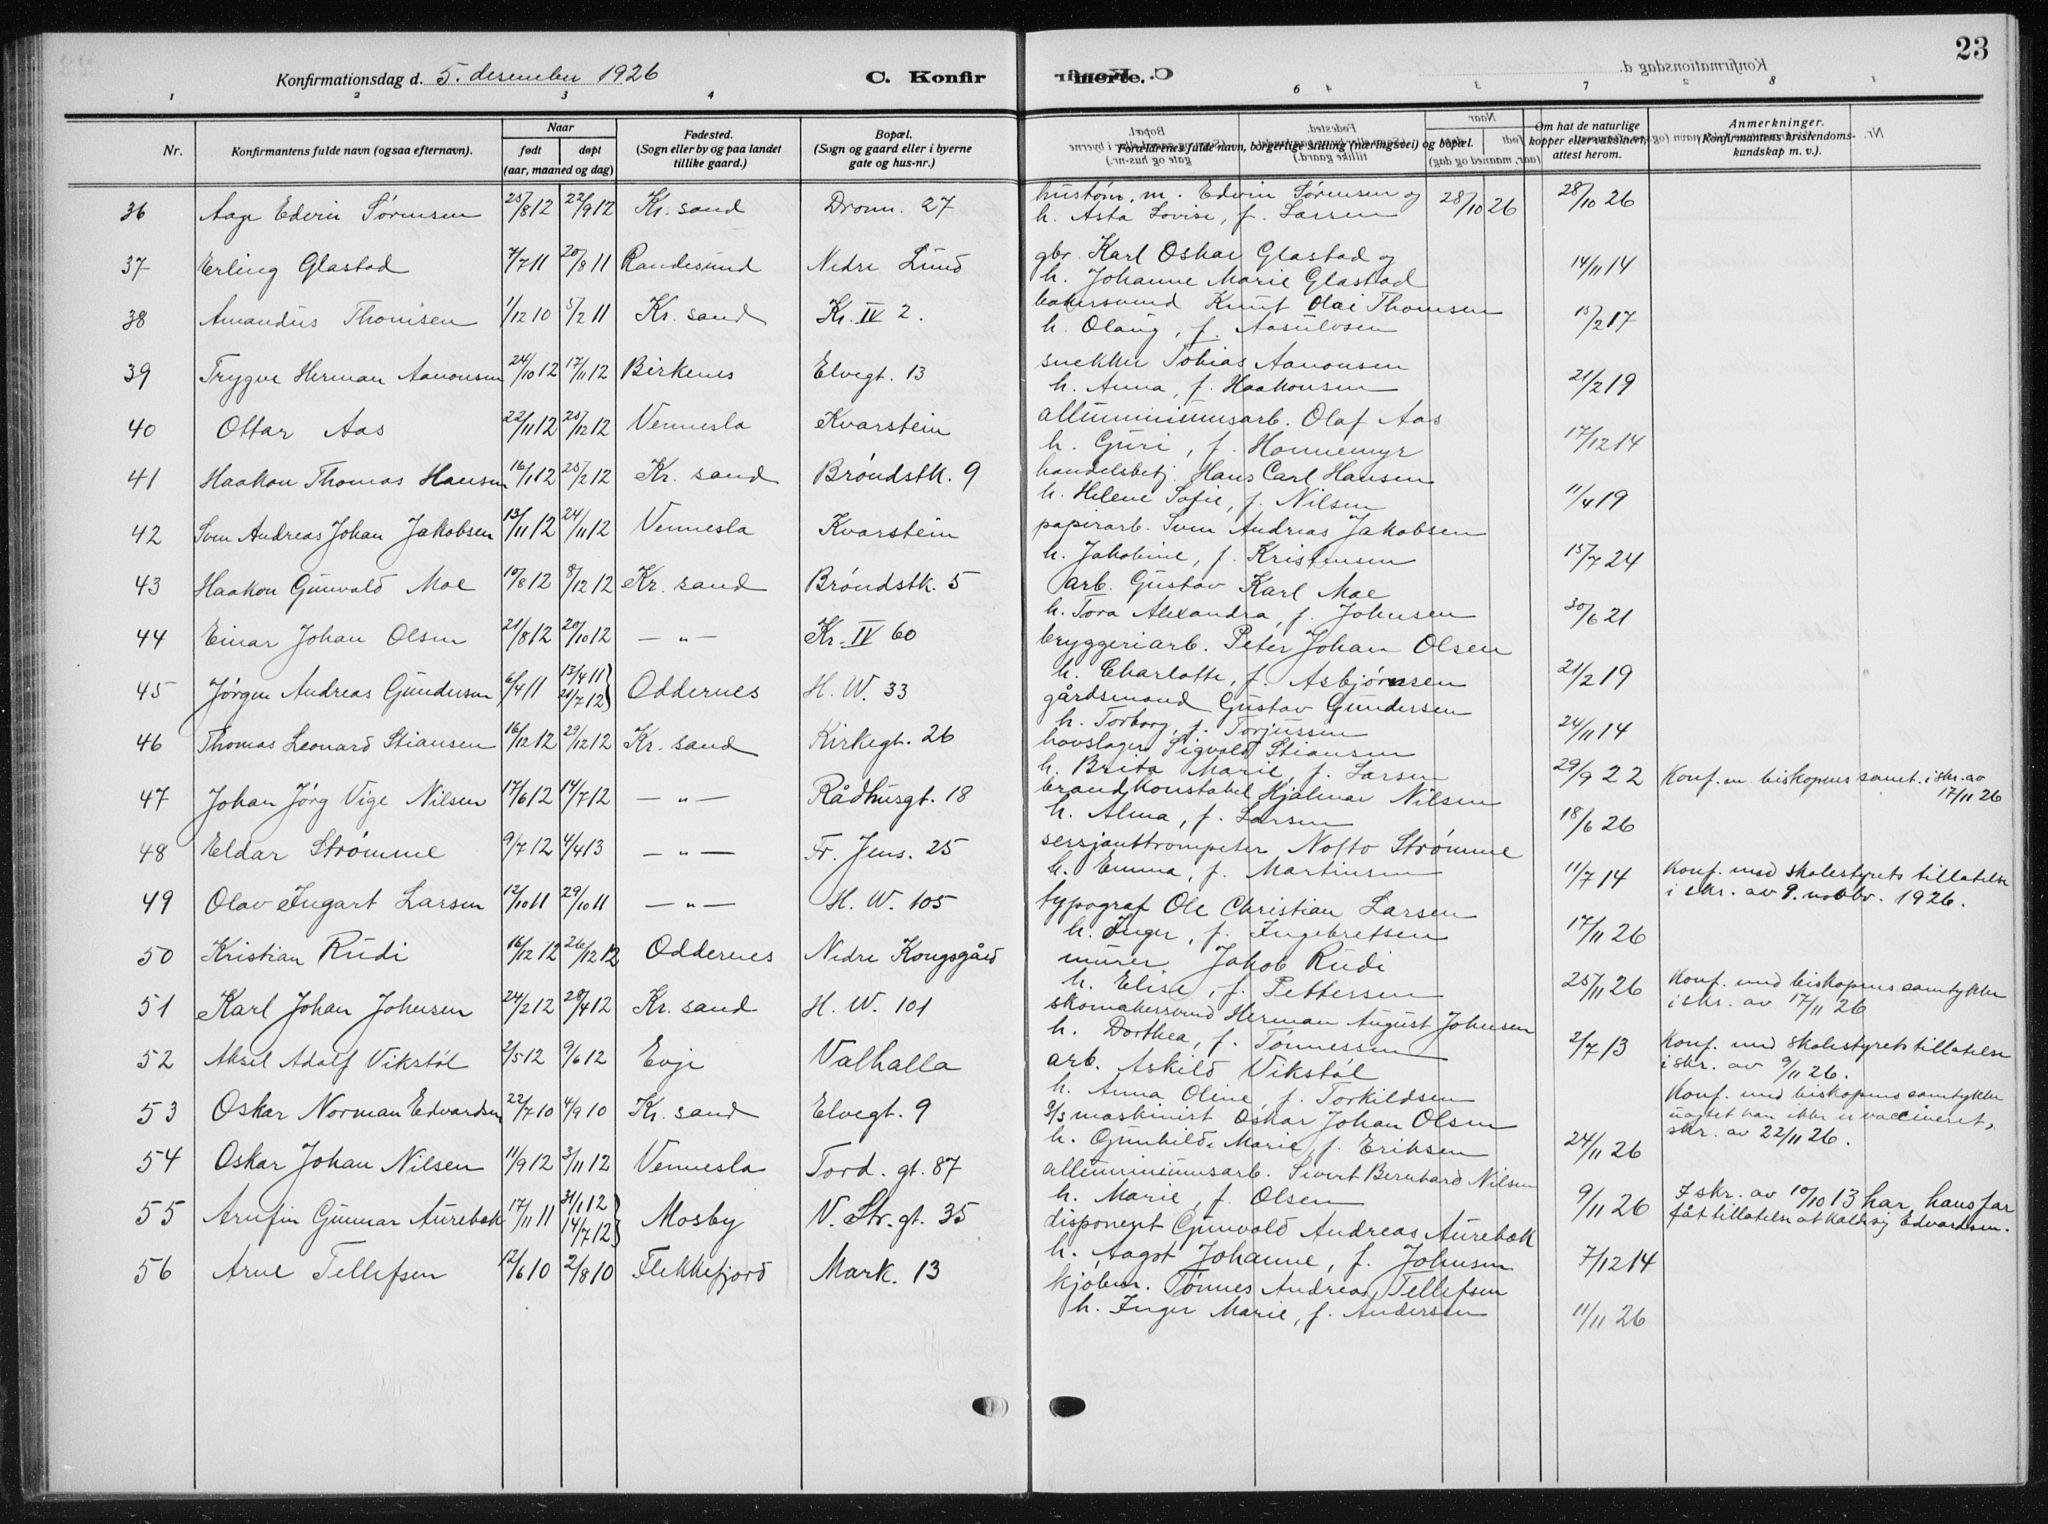 23
Konfirmationsdag d. 5. desember 1926
C. Konfirmerte.
1 2 3 4 6 7 8
Nr.
Konfirmantens fulde navn (ogsaa efternavn).
Naar
født døpt
(aar, maaned og dag)
Fødested.
(Sogn eller by og paa landet
tillike gaard.)
Bopæl.
(Sogn og gaard eller i byerne
gate og hus-nr.)
Forældrenes fulde navn, borgerlige stilling (næringsvei) og bopæl.
Om hat de naturlige
kopper eller vaksinert,
attest herom.
Anmerkninger.
(Konfirmantens kristendoms-
kundskap m. v.).
36 Aage Edvin Sørensen 25/8 12 22/9 12 Kr. sand Dronn. 27
hustøm. m. Edvin Sørensen og 28/10 26 28/10 26
h. Asta Lovise, f. Larsen
37 Erling Glastad 7/7 11 20/8 11 Randesund Nedre Lund
gbr. Karl Oskar Glastad og 14/11 14
h. Johanne Marie Glastad
38 Amandus Thomsen 1/12 10 5/2 11 Kr. sand Kr. IV 2.
bakersvend Knut Olai Thomsen 15/2 17
h. Olaug, f. Aasulvsen
39 Trygve Herman Aanonsen 24/10 12 17/11 12 Birkenes Elvegt. 13
snekker Tobias Aanonsen 21/2 19
h. Anna, f. Haakonsen
40 Ottar Aas 22/11 12 25/12 12 Vennesla Kvarstein
alluminiumsarb. Olaf Aas 17/12 14
h. Guri, f. Honnemyr
41 Haakon Thomas Hansen 16/1 12 25/2 12 Kr. sand Brøndstk. 9
handelsbetj. Hans Carl Hansen 11/4 19
h. Helene Sofie, f. Nilsen
42 Sven Andreas Johan Jakobsen 13/11 12 24/11 12 Vennesla Kvarstein
papirarb. Sven Andreas Jakobsen 15/7 24
h. Jakobine, f. Kristensen
43 Haakon Gunvald Moe 10/8 12 8/12 12 Kr. sand Brøndstk. 5
arb. Gustav Karl Moe 30/6 21
h. Tora Alexandra, f. Johnsen
44 Einar Johan Olsen 21/8 12 20/10 12 — „ — Kr. IV 60
bryggeriarb. Peter Johan Olsen 21/2 19
h. Charlotte, f. Asbjørnsen
45 Jørgen Andreas Gundersen 6/4 11 13/4 11 } 21/7 12 } Oddernes H. W. 33
gårdsmand Gustav Gundersen 24/11 14
h. Torborg, f. Torjussen
46 Thomas Leonard Stiansen 16/12 12 29/12 12 Kr. sand Kirkegt. 26
hovslager Sigvald Stiansen 29/9 22 Konf. m biskopens samt. i skr. av
17/11 26
h. Brita Marie, f. Larsen
47 Johan Jørg Vige Nilsen 17/6 12 14/7 12 — „ — Rådhusgt. 18
brandkonstabel Hjalmar Nilsen 18/6 26
h. Alma, f. Larsen
48 Eldar Strømme 9/7 12 4/4 13 — „ — Fr. Jens. 25
sersjanttrompeter Notto Strømme 11/7 14 Konf. med skolestyrets tillatelse
h. Emma, f. Martinsen i skr. av 9. novbr. 1926.
49 Olav Ingart Larsen 12/10 11 29/10 11 — „ — H. W. 105
typograf Ole Christian Larsen 17/11 26
h. Inger, f. Ingebretsen
50 Kristian Rudi 16/12 12 26/12 12 Oddernes Nedre Kongsgård
murer Jakob Rudi 25/11 26 Konf. med biskopens samtykke
h. Elise, f. Pettersen i skr. av 17/11 26
51 Karl Johan Johnsen 24/2 12 28/4 12 Kr. sand H. W. 101
skomakersvend Herman August Johnsen 2/7 13 Konf. med skolestyrets tillatelse
h. Dorthea, f. Tønnessen i skr. av 9/11 26.
52 Aksel Adolf Vikstøl 2/5 12 9/6 12 Evje Valhalla
arb. Askild Vikstøl Konf. med biskopens samtykke
h. Anna Oline, f. Torkildsen uagtet han ikke er vaccineret,
skr. av 22/11 26.
53 Oskar Norman Edvardsen 22/7 10 4/9 10 Kr. sand Elvegt. 9
3/3 maskinist Oskar Johan Olsen 24/11 26
h. Gunhild Marie, f. Eriksen
54 Oskar Johan Nilsen 11/9 12 3/11 12 Vennesla Tord. gt. 87
alluminiumsarb. Sivert Bernhard Nilsen 9/11 26 I skr. av 10/10 13 har hans far
h. Marie, f. Olsen fåt tillatelse at kalde sig Edvardsen.
55 Arnfin Gunnar Aurebæk 17/11 11 31/1 12 } 14/7 12 } Mosby V. Str. gt. 35
disponent Gunvald Andreas Aurebæk 7/12 14
h. Aagot Johanne, f. Johnsen
56 Arne Tellefsen 12/6 10 2/8 10 Flekkefjord Mark. 13
kjøbm. Tønnes Andreas Tellefsen 11/11 26
h. Inger Marie, f. Andersen